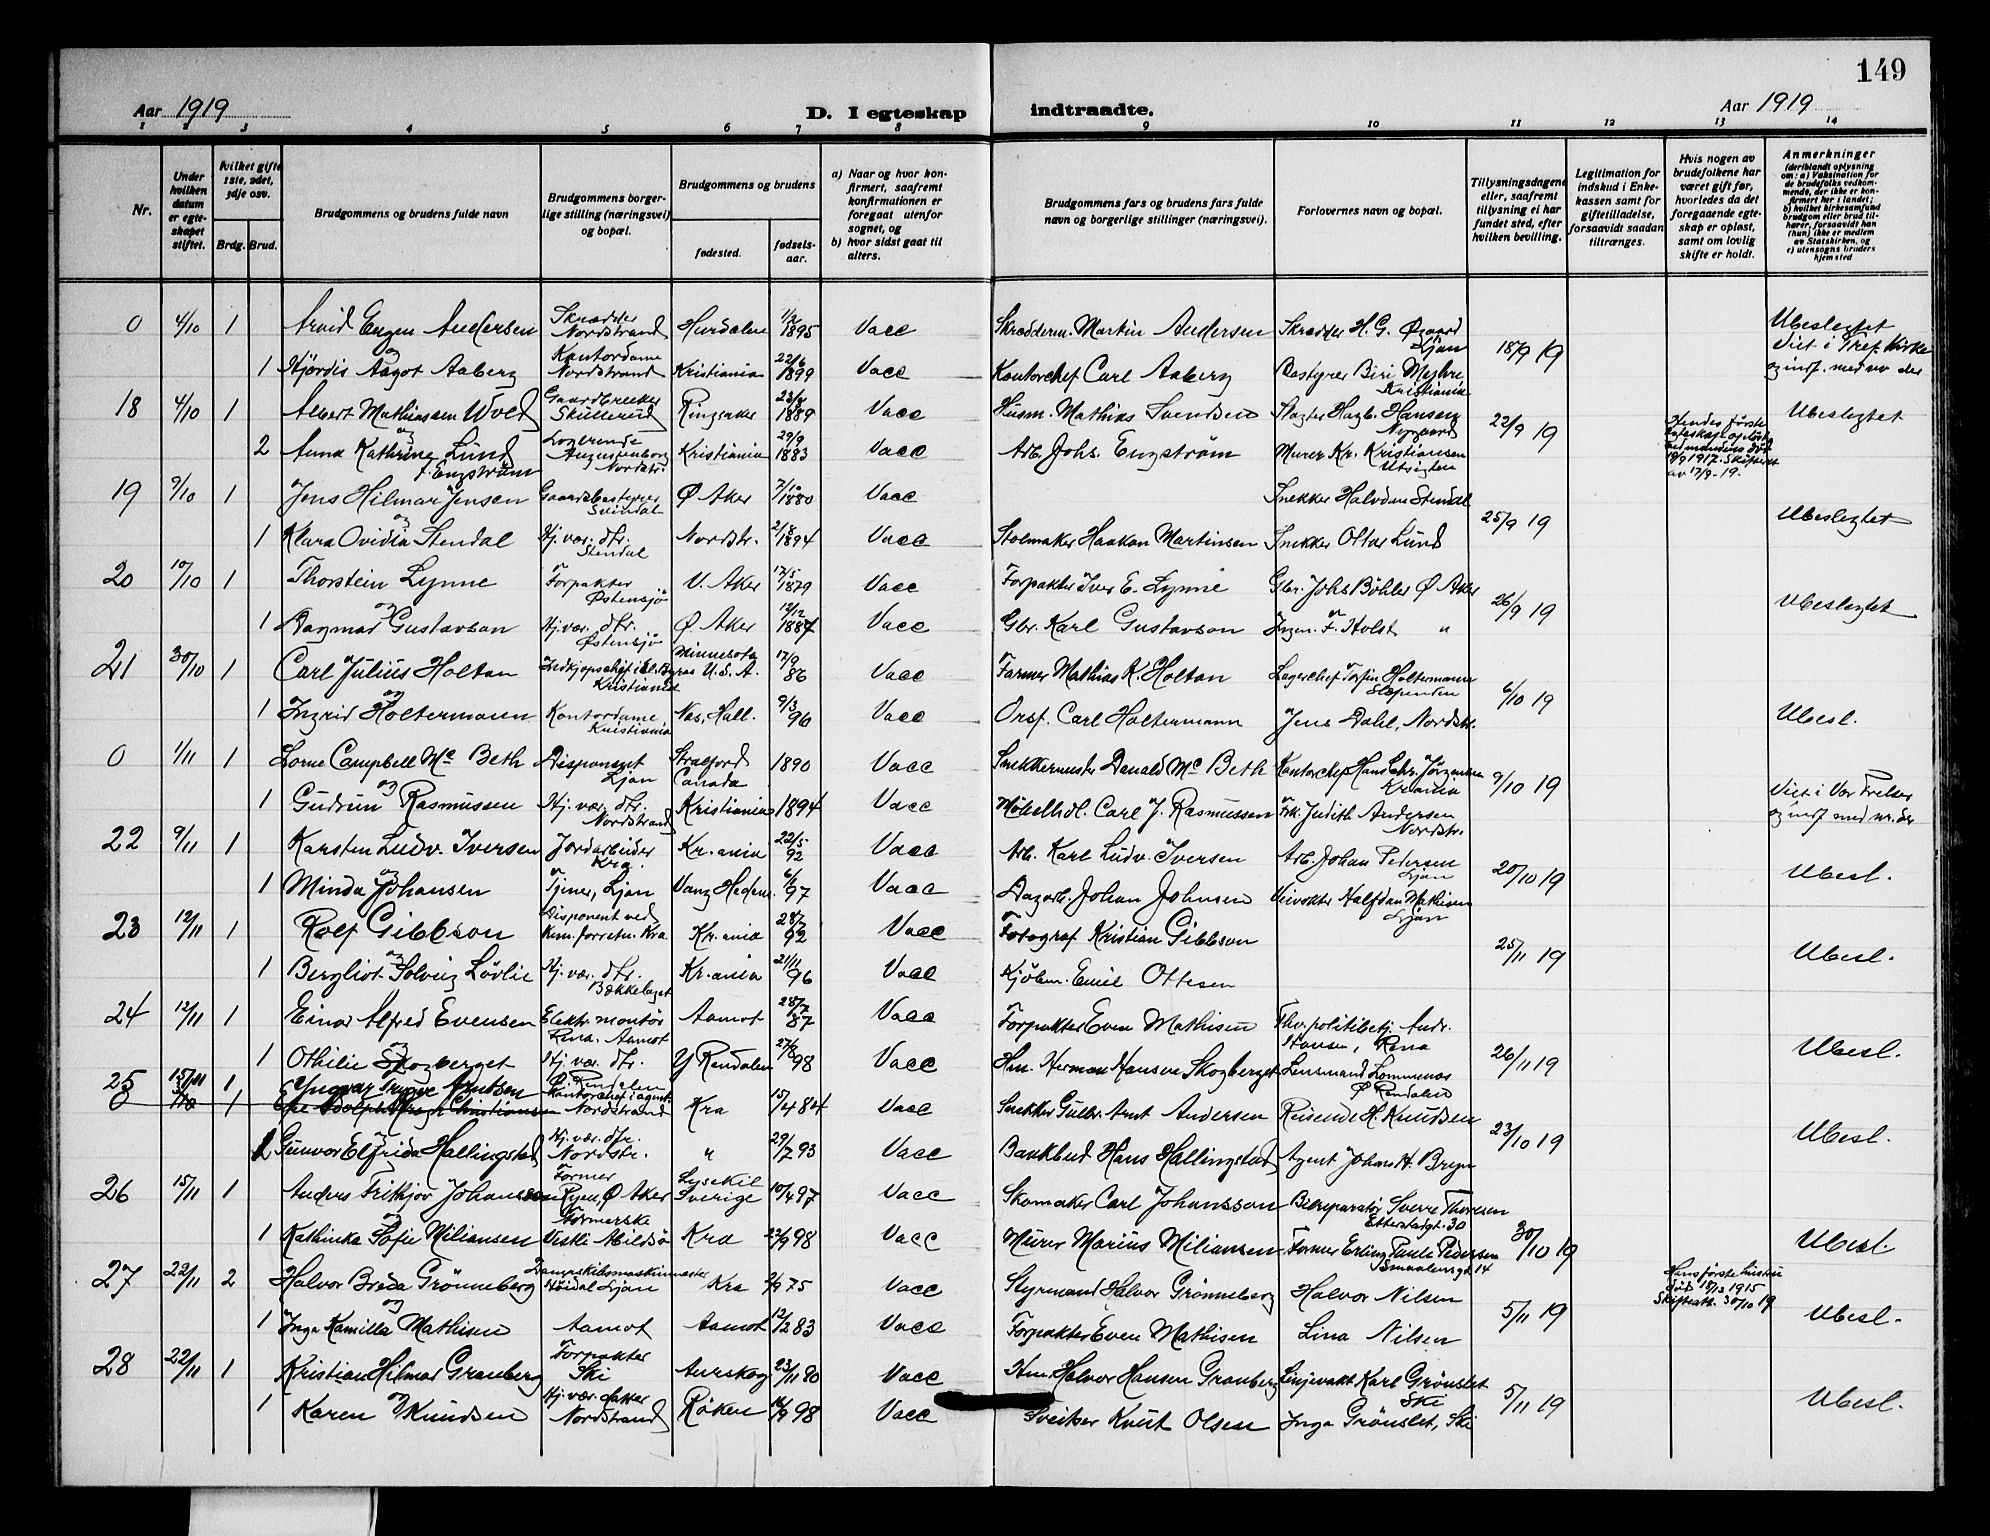 149
Aar 1919
D. I egteskap indtraadte.
Aar 1919
1 2 3 4 5 6 7 8 9 10 11 12 13 14
Nr.
Under hvilken datum er egteskapet stiftet.
Hvilket gifte 1ste, 2det, 3dje osv.
Brdg. Brud.
Brudgommens og brudens fulde navn
Brudgommens borgerlige stilling (næringsvei) og bopæl.
Brudgommens og brudens
fødested.
fødselsaar.
a) Naar og hvor konfirmert, saafremt konfirmationen er foregaat utenfor sognet, og
b) hvor sidst gaat til alters.
Brudgommens fars og brudens fars fulde navn og borgerlige stillinger (næringsvei).
Forlovernes navn og bopæl.
Tillysningsdagene eller, saafremt tillysning ei har fundet sted, efter hvilken bevilling.
Legitimation for indskud i Enkekassen samt for giftetilladelse, forsaavidt saadan tiltrænges.
Hvis nogen av brudefolkene har været gift før, hvorledes da det foregaaende egteskap er opløst, samt om lovlig skifte er holdt.
Anmerkninger
(deriblandt oplysning om: a) Vaksination for de brudefolks vedkommende, der ikke er konfirmert her i landet; b) hvilket kirkesamfund brudgom eller brud tilhører, forsaavidt han (hun) ikke er medlem av Statskirken, og c) utensogns bruders hjemsted
0 4/10 1 Arvid Eugen Andersen Skrædder Nordstrand Hurdalen 1/2 1895 Vacc Skræderm. Martin Andersen Skrædder H. G. Øgaard Ljan 18/9 19 Ubeslegtet Viet i Tref. kirke
og
1 Hjørdis Aagot Aaberg Kontordame Nordstrand Kristiania 22/6 1899 Vacc Kontorchef Carl Aaberg Bestyrer Biri Myhre Kristiania
18 4/10 1 Albert Mathiassen Wold Gaardbruker Skullerud Ringsaker 23/8 1889 Vacc Husm. Mathias Svendsen Slagter Hagb. Hansen Nygaard 22/9 19 Ubeslegtet
og
2 Anna Kathrine Lund f. Engstrøm Augustenborg Nordstr. Kristiania 29/9 1883 Vacc Arb. Johs. Engstrøm Murer Kr. Kristiansen Utsigten
Hendes første egteskap opløst ved mandens død 19/9 1917. Skifteatt av 17/9-19.
19 9/10 1 Jens Hilmar Jensen Gaardsbestyrer Svindal Ø Aker 7/10 1880 Vacc Snekker Halvdan Stendal 25/9 19 Ubeslegtet
og
1 Klara Ovidia Stendal Hj. vær. dtr. Stendal Nordstr. 2/8 1894 Vacc Stolmaker Haakon Martinsen Snekker Ottar Lund
20 10/10 1 Thorstein Lynne Forpakter Østensjø V. Aker 17/5 1879 Vacc Forpakter Iver E. Lynne Gbr. Johs Bøhler Ø Aker 26/9 19 Ubeslegtet
og
1 Dagmar Gustavson Hj. vær. dtr. Østensjø Ø. Aker 12/12 1887 Vacc Gbr. Karl Gustavson Ingen. F. Holst "
21 30/10 1 Carl Julius Holtan Kristiania Minnesota U.S.A. 17/9 86 Vacc Farmer Mathias K. Holtan Lagerchef Torfin Holtermann Slependen 6/10 19 Ubesl.
og
1 Ingrid Holtermann Kontordame, Kristiania Nes, Hall. 9/3 96 Vacc Orsf. Carl Holtermann Jens Dahl, Nordstr.
0 1/11 1 Lorne Campbell Mc Beth Disponent Ljan Stratford Canada 1890 Vacc Snekkermester Donald Mc Beth Kontorchef Hans Chr. Jørgensen Kr.ania 9/10 19 Viet i Vor Frelser
og
1 Gudrun Rasmussen Hj. vær. dtr. Nordstrand Kristiania 1894 Vacc Møbelhdl. Carl J. Rasmussen Frk. Judith Andersen Nordstr.
22 9/11 1 Karsten Ludv. Iversen Jordarbeider Kra. Kr.ania 22/5 92 Vacc Arb. Karl Ludv. Iversen Arb. Johan Pedersen Ljan 20/10 19 Ubesl.
og
1 Minda Johansen Tjener, Ljan Vang Hedem. 6/6 97 Vacc Dagarb. Johan Johnsen Veivokter Halfdan Mathisen Ljan
23 12/11 1 Rolf Gibbson Disponent ved kem. forretn. Kra Kr.ania 28/7 92 Vacc Fotograf Kristian Gibbson 25/11 19 Ubesl.
og
1 Bergliot Solveig Løvlie Hj. vær. dtr. Bækkelaget Kr.ania 21/11 96 Vacc Kjøbm. Emil Ottesen
24 12/11 1 Einar Alfred Evensen Elektr. montør Rena. Aamot Aamot 28/7 87 Vacc Forpakter Even Mathisen Fhv. politibetj. Andr. Stousen, Rena 26/11 19 Ubesl.
og
1 Othilie Skogberget Hj. vær. dtr. Ø. Rendalen Y Rendalen 27/8 98 Vacc Hm. Herman Hansen Skogberget Lensmand Lommenæs Ø Rendalen
25 15/11 1 Ingvar Trygve Arntsen Kontorchef i agent. Nordstrand Kra 15/4 84 Vacc Snekker Gulbr. Arnt Andersen Reisende H. Knudsen 23/10 19 Ubesl.
0 1
og
1 Gunvor Elfrida Hallingstad Hj. vær. dtr. Nordstr. " 29/7 93 Vacc Bankbud Hans Hallingstad Agent Johan H. Bryn
26 15/11 1 Anders Fritkjov Johansson Former Ryen, Ø Aker Lysekil Sverige 10/4 97 Vacc Skomaker Carl Johansson Bilreparatør Sverre Thoresen Etterstadgt. 30 30/10 19 Ubesl.
og
1 Kathinka Sofie Miliansen Formerske Vestli Abildsø Kra 22/9 98 Vacc Murer Marius Miliansen Former Erling Paule Pedersen Smaalensgt. 14
27 22/11 2 Halvor Breda Grønneberg Dampskibsmaskinmester Høidal Ljan Kra 75 Vacc Styrmand Halvor Grønneberg Halvor Nilsen 5/11 19 Ubesl.
Hans første hustru død 18/12 1915 Skifteatt. 30/10 19
og
1 Inga Kamilla Mathisen Aamot Aamot 12/2 83 Vacc Forpakter Even Mathisen Lina Nilsen
28 22/11 1 Kristian Hilmar Granberg Forpakter Ski Aurskog 23/11 80 Vacc Hm. Halvor Hansen Granberg Linjevakt Karl Grønslet Ski 5/11 19 Ubesl.
og
1 Karen Knudsen Hj. vær. datter Nordstrand Røken 98 Vacc Sveitser Knut Olsen Inga Grønslet, Ski